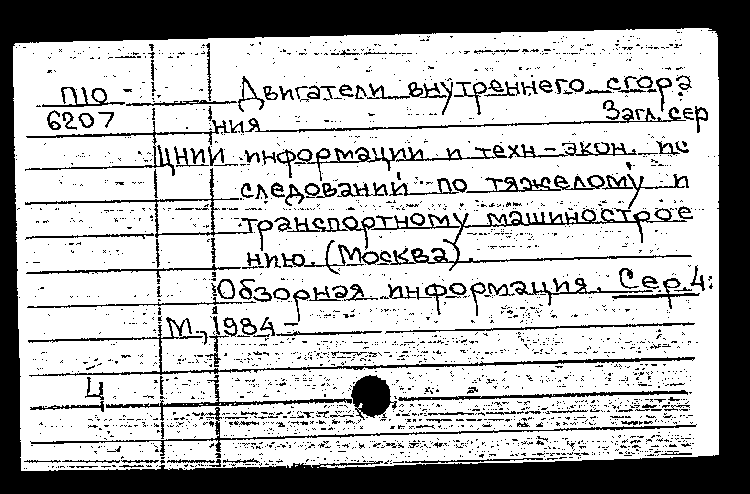 П10 - Двигатели внутреннего сгора
6207 ния Загл. сер
ЦНИИ информации и техн-экон. ис
следований по тяжелому и
транспортному машинострое
нию. (Москва).
Обзорная информация. Сер. 4:
М., 1984 -
Ц